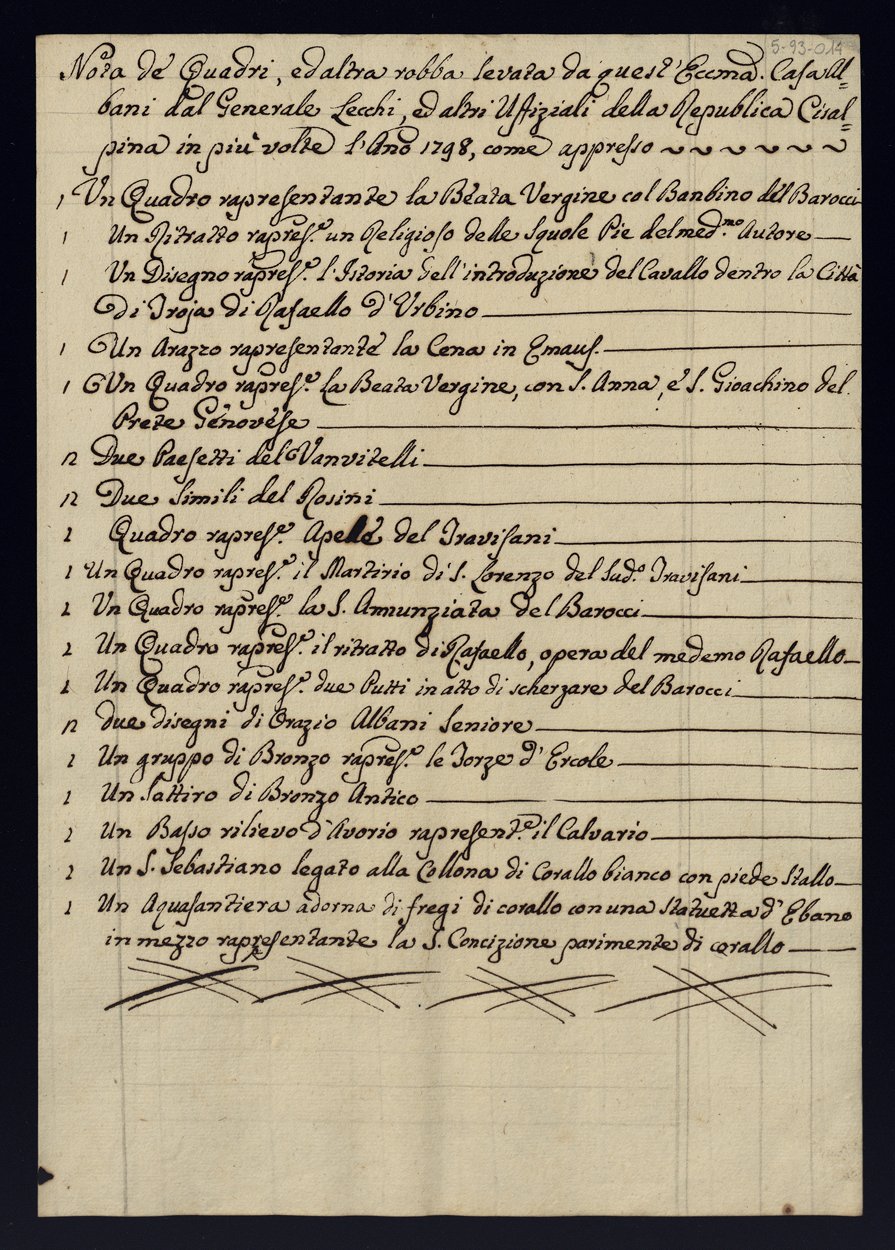 5-93-014
Nota de' Quadri, ed altra robba levata da quest'Eccma. Casa Al=
bani dal Generale Lecchi, ed altri Uffiziali della Republica Cisal=
pina in più volte l'Ano 1798, come appresso ~ ~ ~ ~ ~ ~
1 Un Quadro rapresentante la Beata Vergine col Banbino del Barocci
1 Un Ritratto rapres.e un Religioso delle Squole Pie del med.mo Autore
1 Un Disegno rapres.e l'Istoria dell'introduzione del Cavallo dentro la Città
di Troja di Rafaello d'Urbino
1 Un Arazzo rapresentante la Cena in Emaus.
1 Un Quadro rapres.e la Beata Vergine, con S. Anna, e S. Gioachino del
Prete Genovese
2 Due Paesetti del Vanvitelli
2 Due simili del Rosini
1 Quadro rapres.e Apelle del Travisani
1 Un Quadro rapres.e il Martirio di S. Lorenzo del sud.o Travisani
1 Un Quadro rapres.e la S. Annunziata del Barocci
1 Un Quadro rapres.e il ritratto di Rafaello, opera del medemo Rafaello
1 Un Quadro rapres.e due Putti in atto di scherzare del Barocci
2 due disegni di Orazio Albani Seniore
1 Un gruppo di Bronzo rapres.e le Forze d'Ercole
1 Un Sattiro di Bronzo Antico
1 Un Basso rilievo d'Avorio rapresent.e il Calvario
1 Un S. Sebastiano legato alla Collona di Corallo bianco con piede stallo
1 Un Aquasantiera adorna di fregi di corallo con una statuetta d'Ebano
in mezzo rapresentante la S. Concizione parimente di corallo